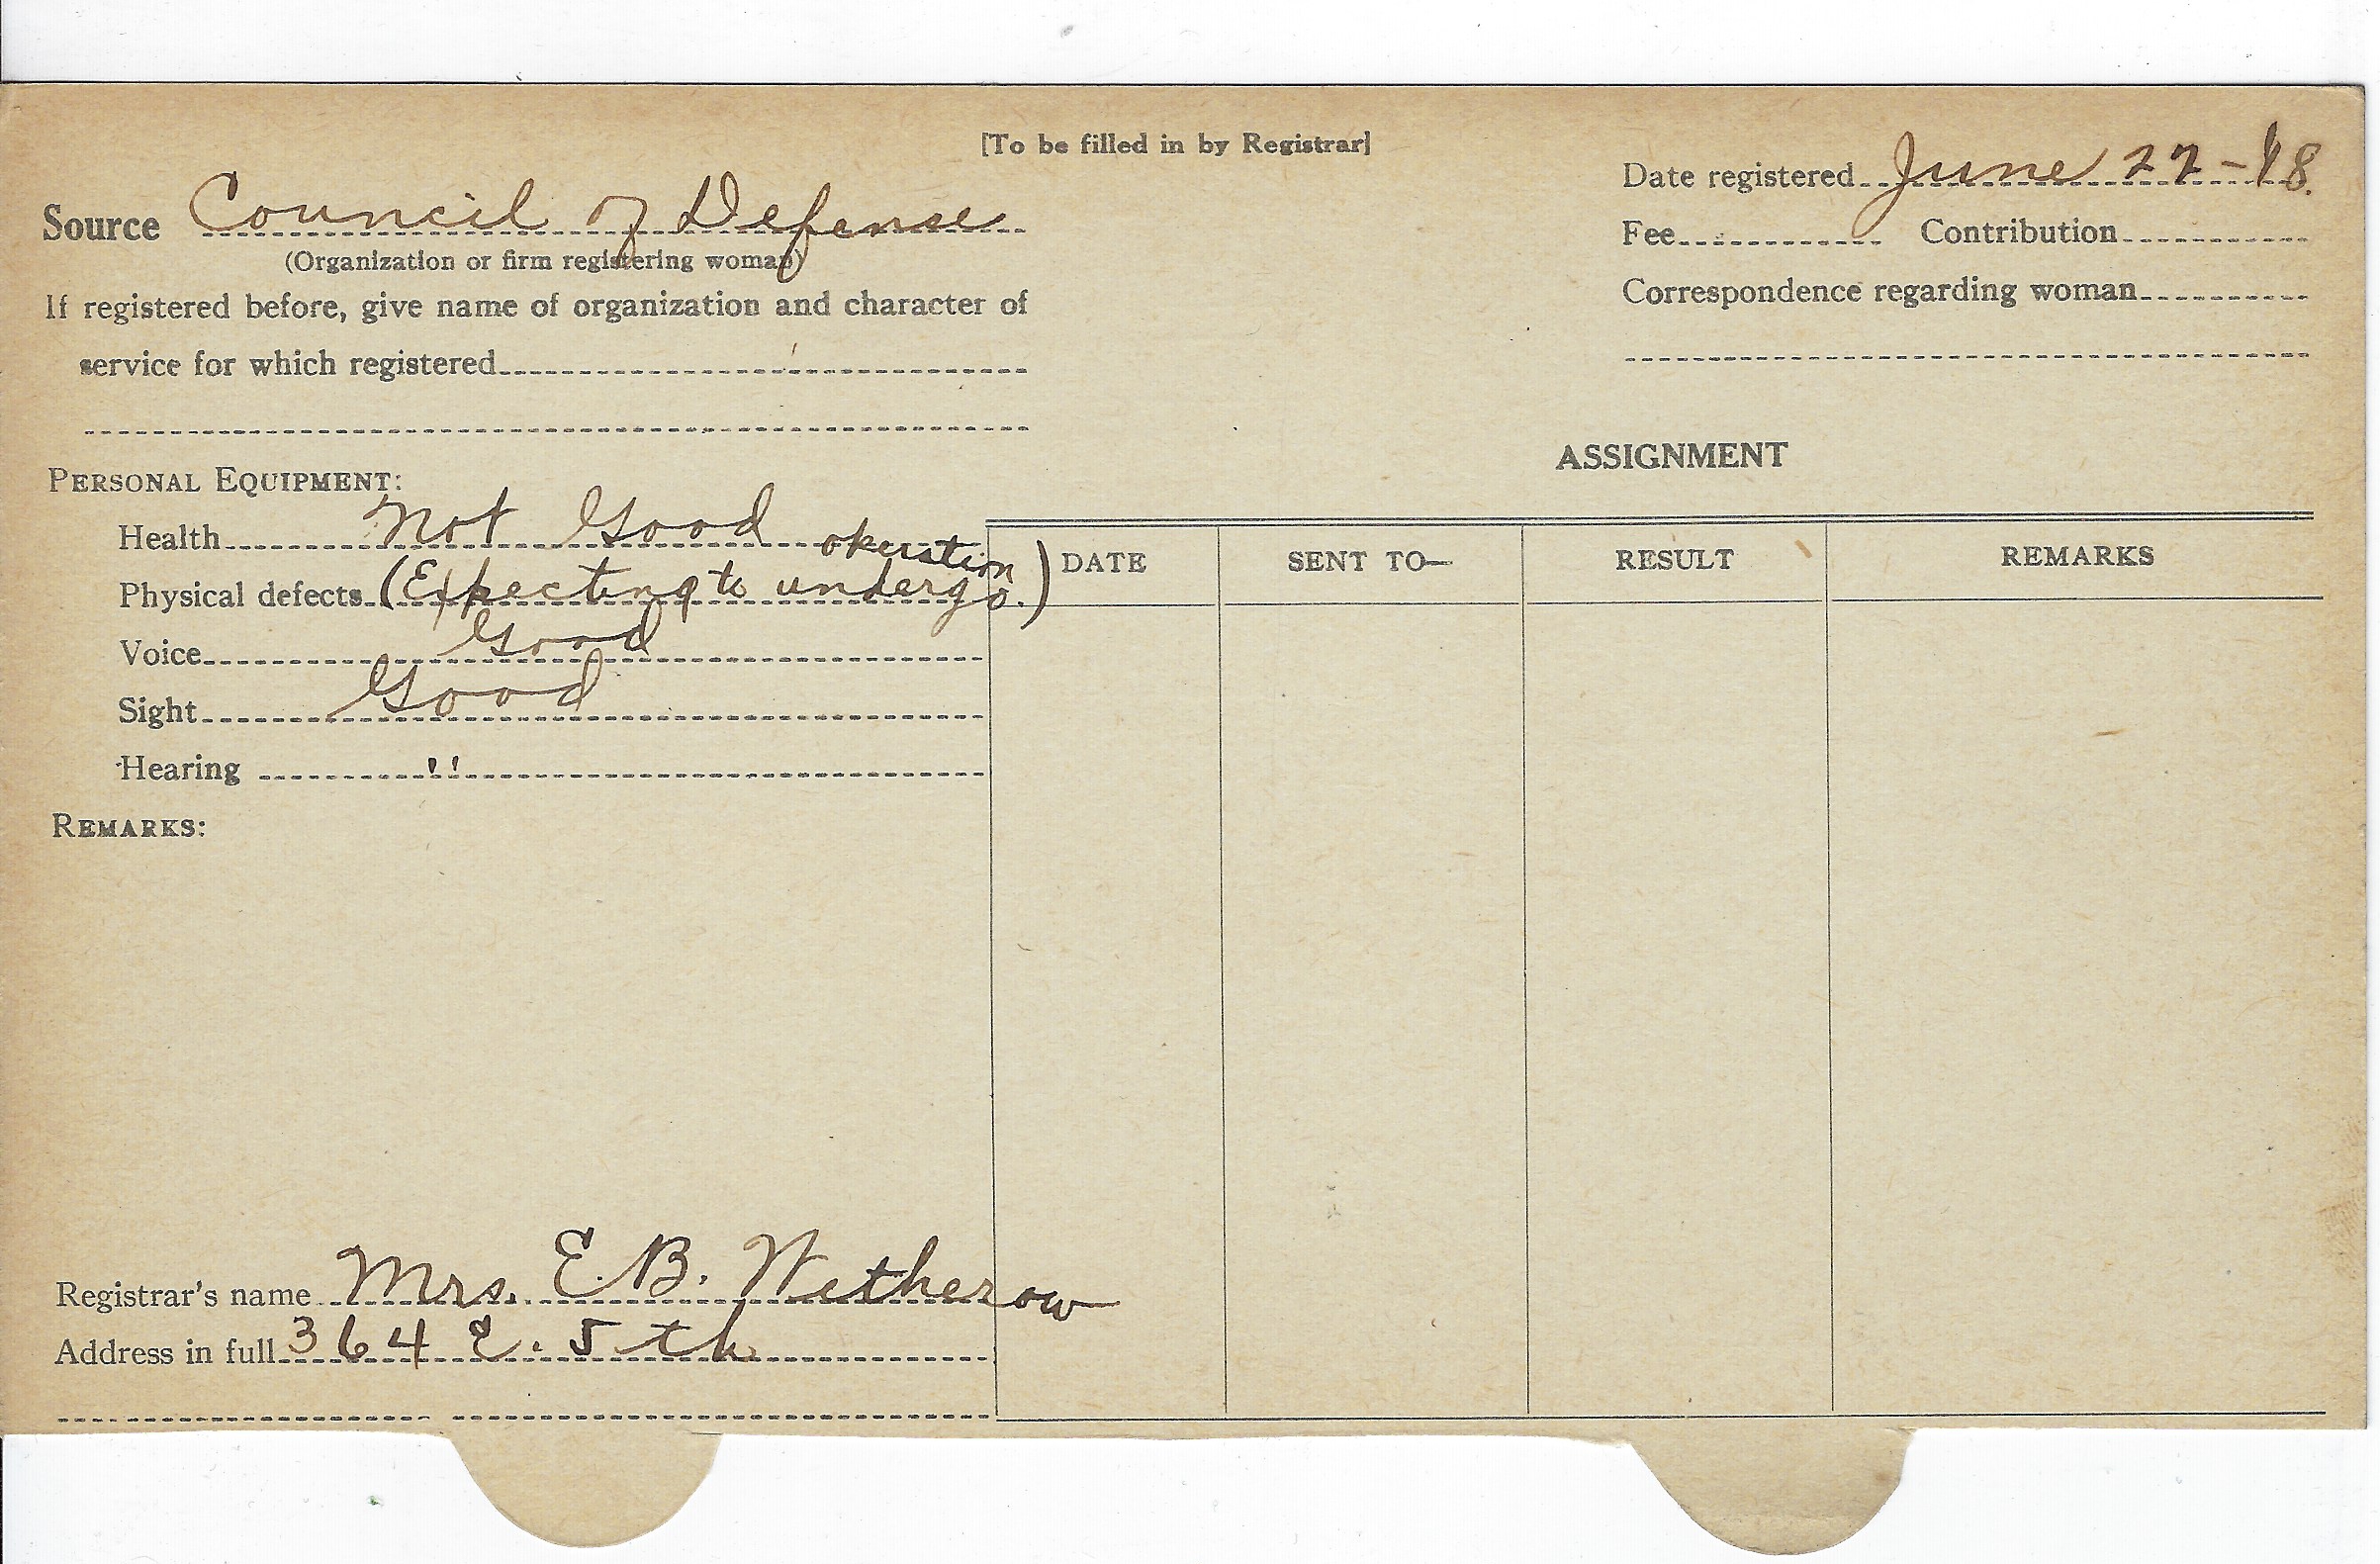 [To be filled in by Registrar]
Source Council of Defense
(Organization or firm registering woman)
If registered before, give name of organization and character of
service for which registered
Date registered June 27-18.
Fee Contribution
Correspondence regarding woman
PERSONAL EQUIPMENT:
Health Not Good
Physical defects (Expecting to undergo. operation)
Voice Good
Sight Good
Hearing "
REMARKS:
ASSIGNMENT
DATE SENT TO— RESULT REMARKS
Registrar's name Mrs. E. B. Witherow
Address in full 364 E. 5th